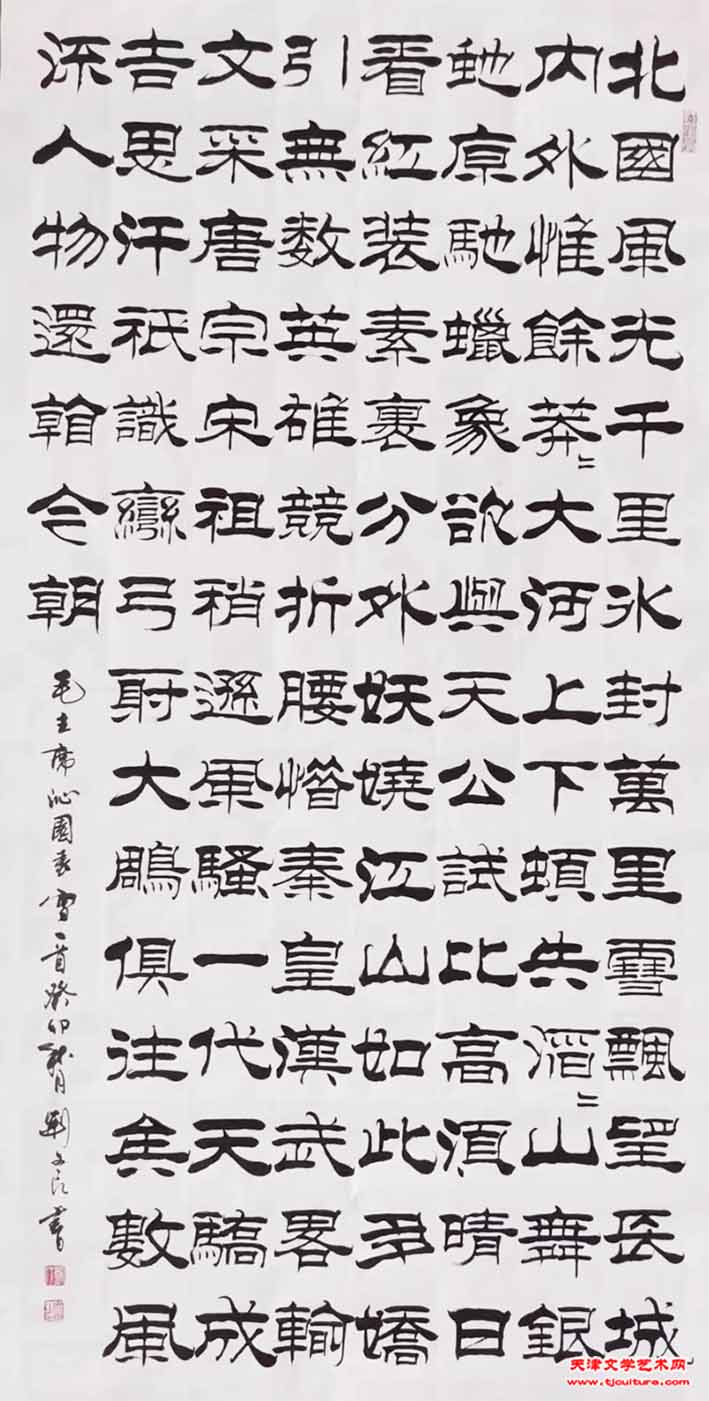 北國風光千里冰封萬里雪飄望長城
内外惟餘莽〻大河上下頓失滔〻山舞銀
蛇原馳蠟象欲與天公試比高須晴日
看紅装素裹分外妖嬈江山如此多嬌
引無数英雄競折腰惜秦皇漢武畧輸
文采唐宗宋祖稍遜風騷一代天驕成
吉思汗祇識彎弓射大雕俱往矣數風
流人物還看今朝
毛主席沁園春雪一首癸卯月劉文良書
天津文学艺术网
www.tjculture.com